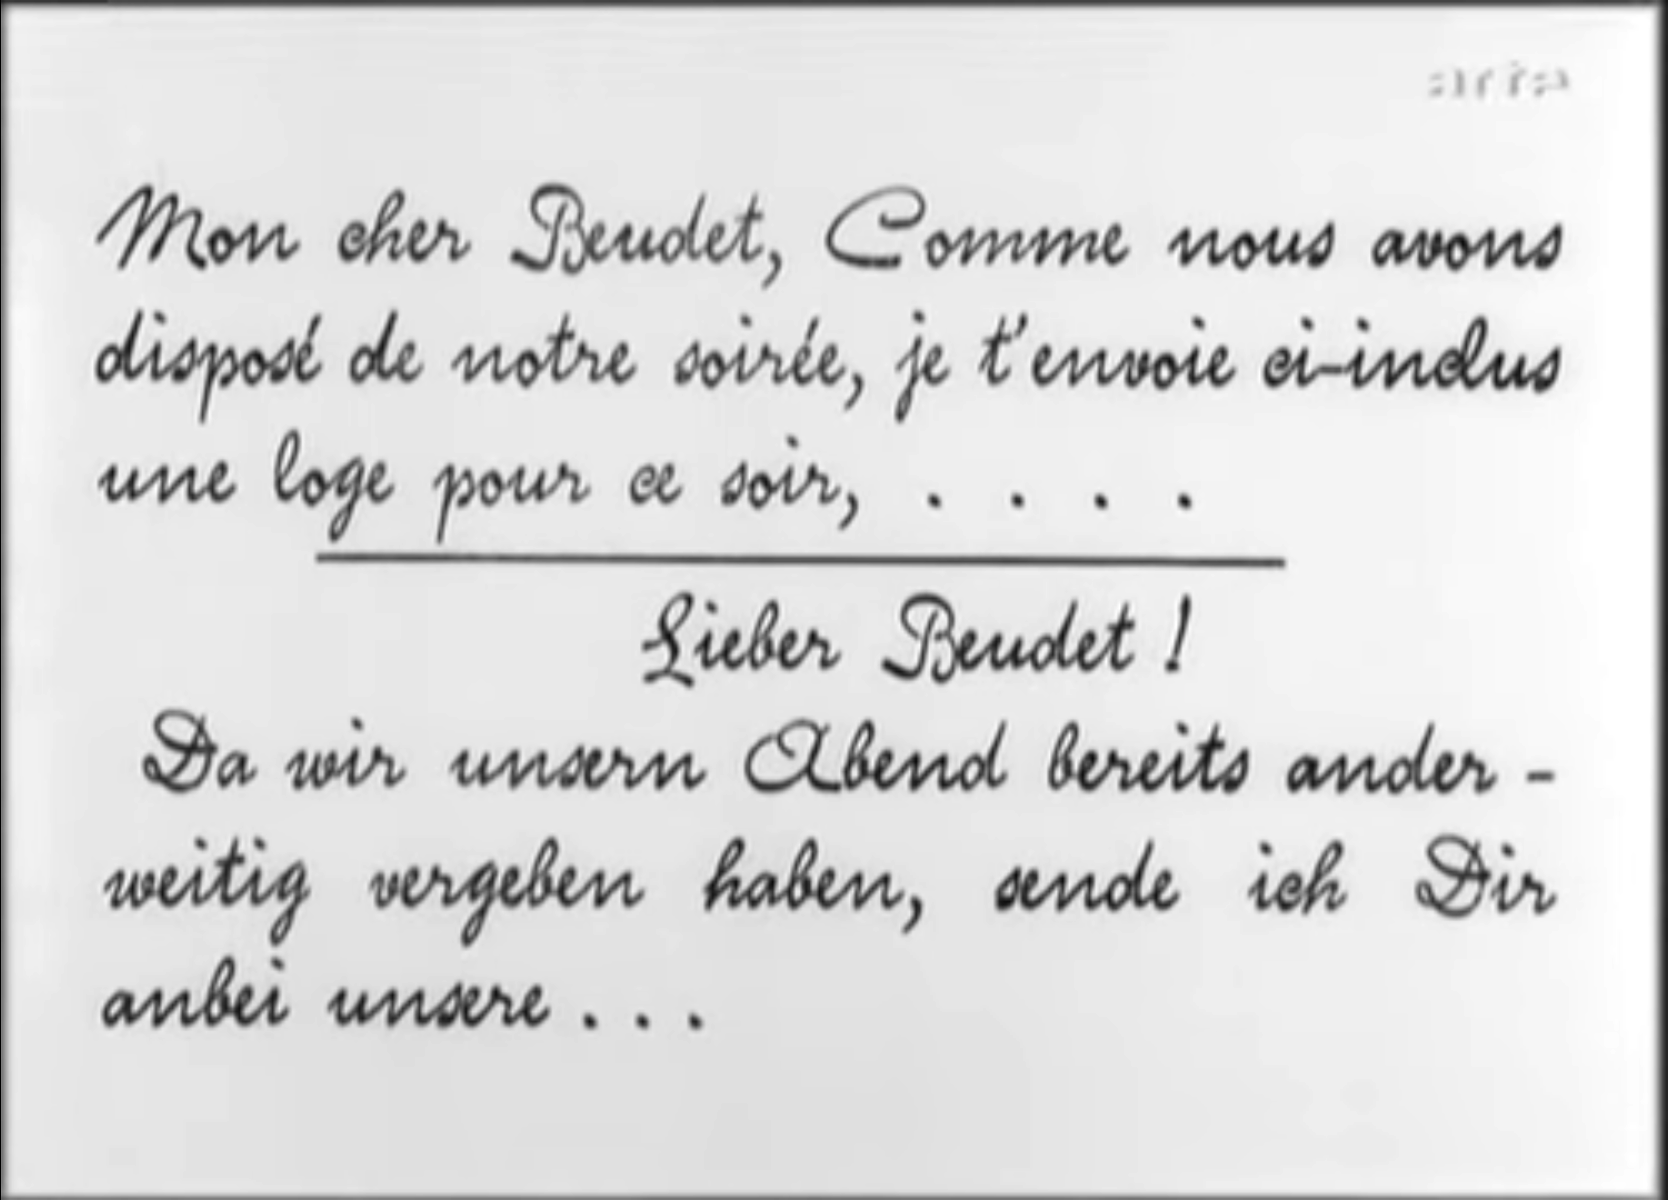 Mon cher Beudet, Comme nous avons
disposé de notre soirée, je t'envoie ci-inclus
une loge pour ce soir, . . . .
Lieber Beudet !
Da wir unsern Abend bereits ander -
weitig vergeben haben, sende ich Dir
anbei unsere . . .